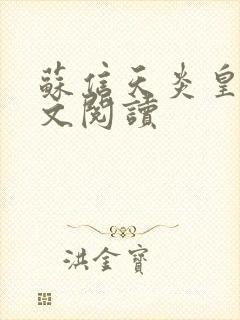 蘇信天炎皇
文閱讀
洪金寶